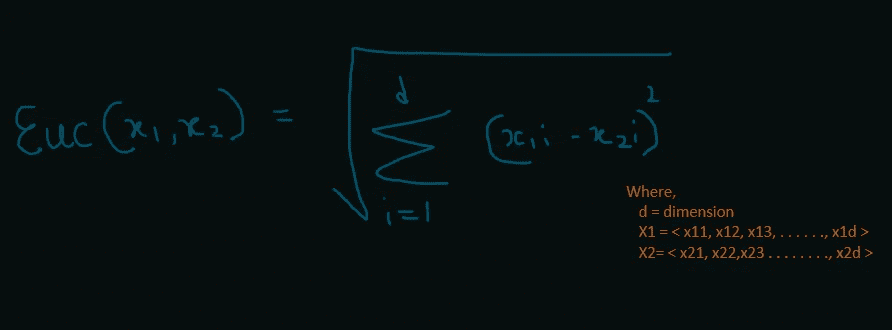 Euc(x₁,x₂) = √ d ∑ i=1 (x₁i - x₂i)²
Where,
d = dimension
X1 = < x11, x12, x13, . . . . . ., x1d >
X2= < x21, x22,x23 . . . . . . . ., x2d >